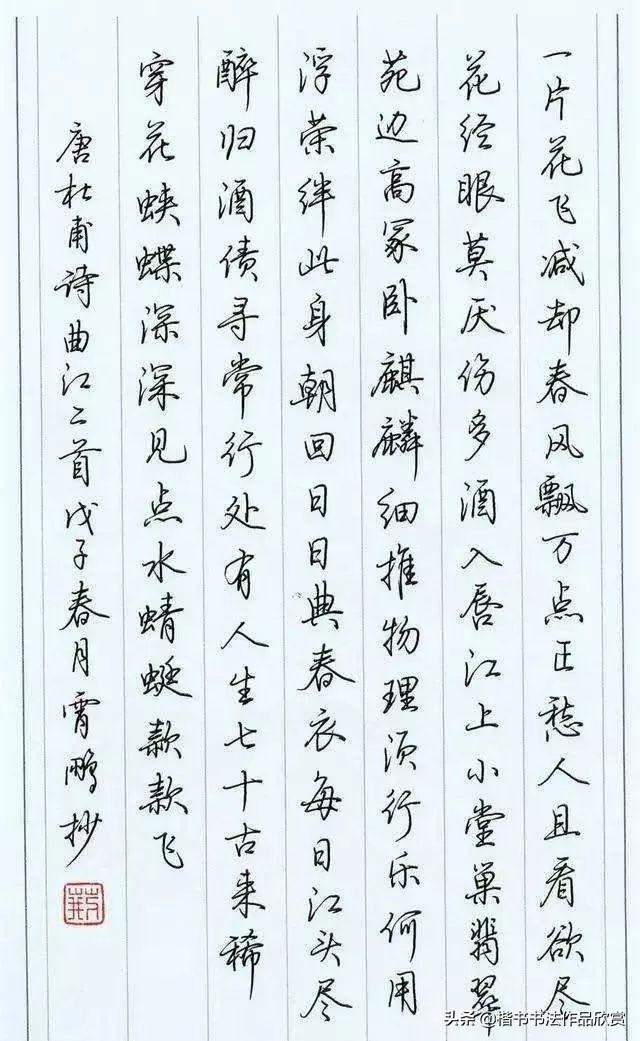 一片花飞减却春风飘万点正愁人且看欲尽
花经眼莫厌伤多酒入唇江上小堂巢翡翠
苑边高冢卧麒麟细推物理须行乐何用
浮荣绊此身朝回日日典春衣每日江头尽
醉归酒债寻常行处有人生七十古来稀
穿花蛱蝶深深见点水蜻蜓款款飞
唐杜甫诗曲江二首戊子春月霄鹏抄
头条@楷书书法作品欣赏